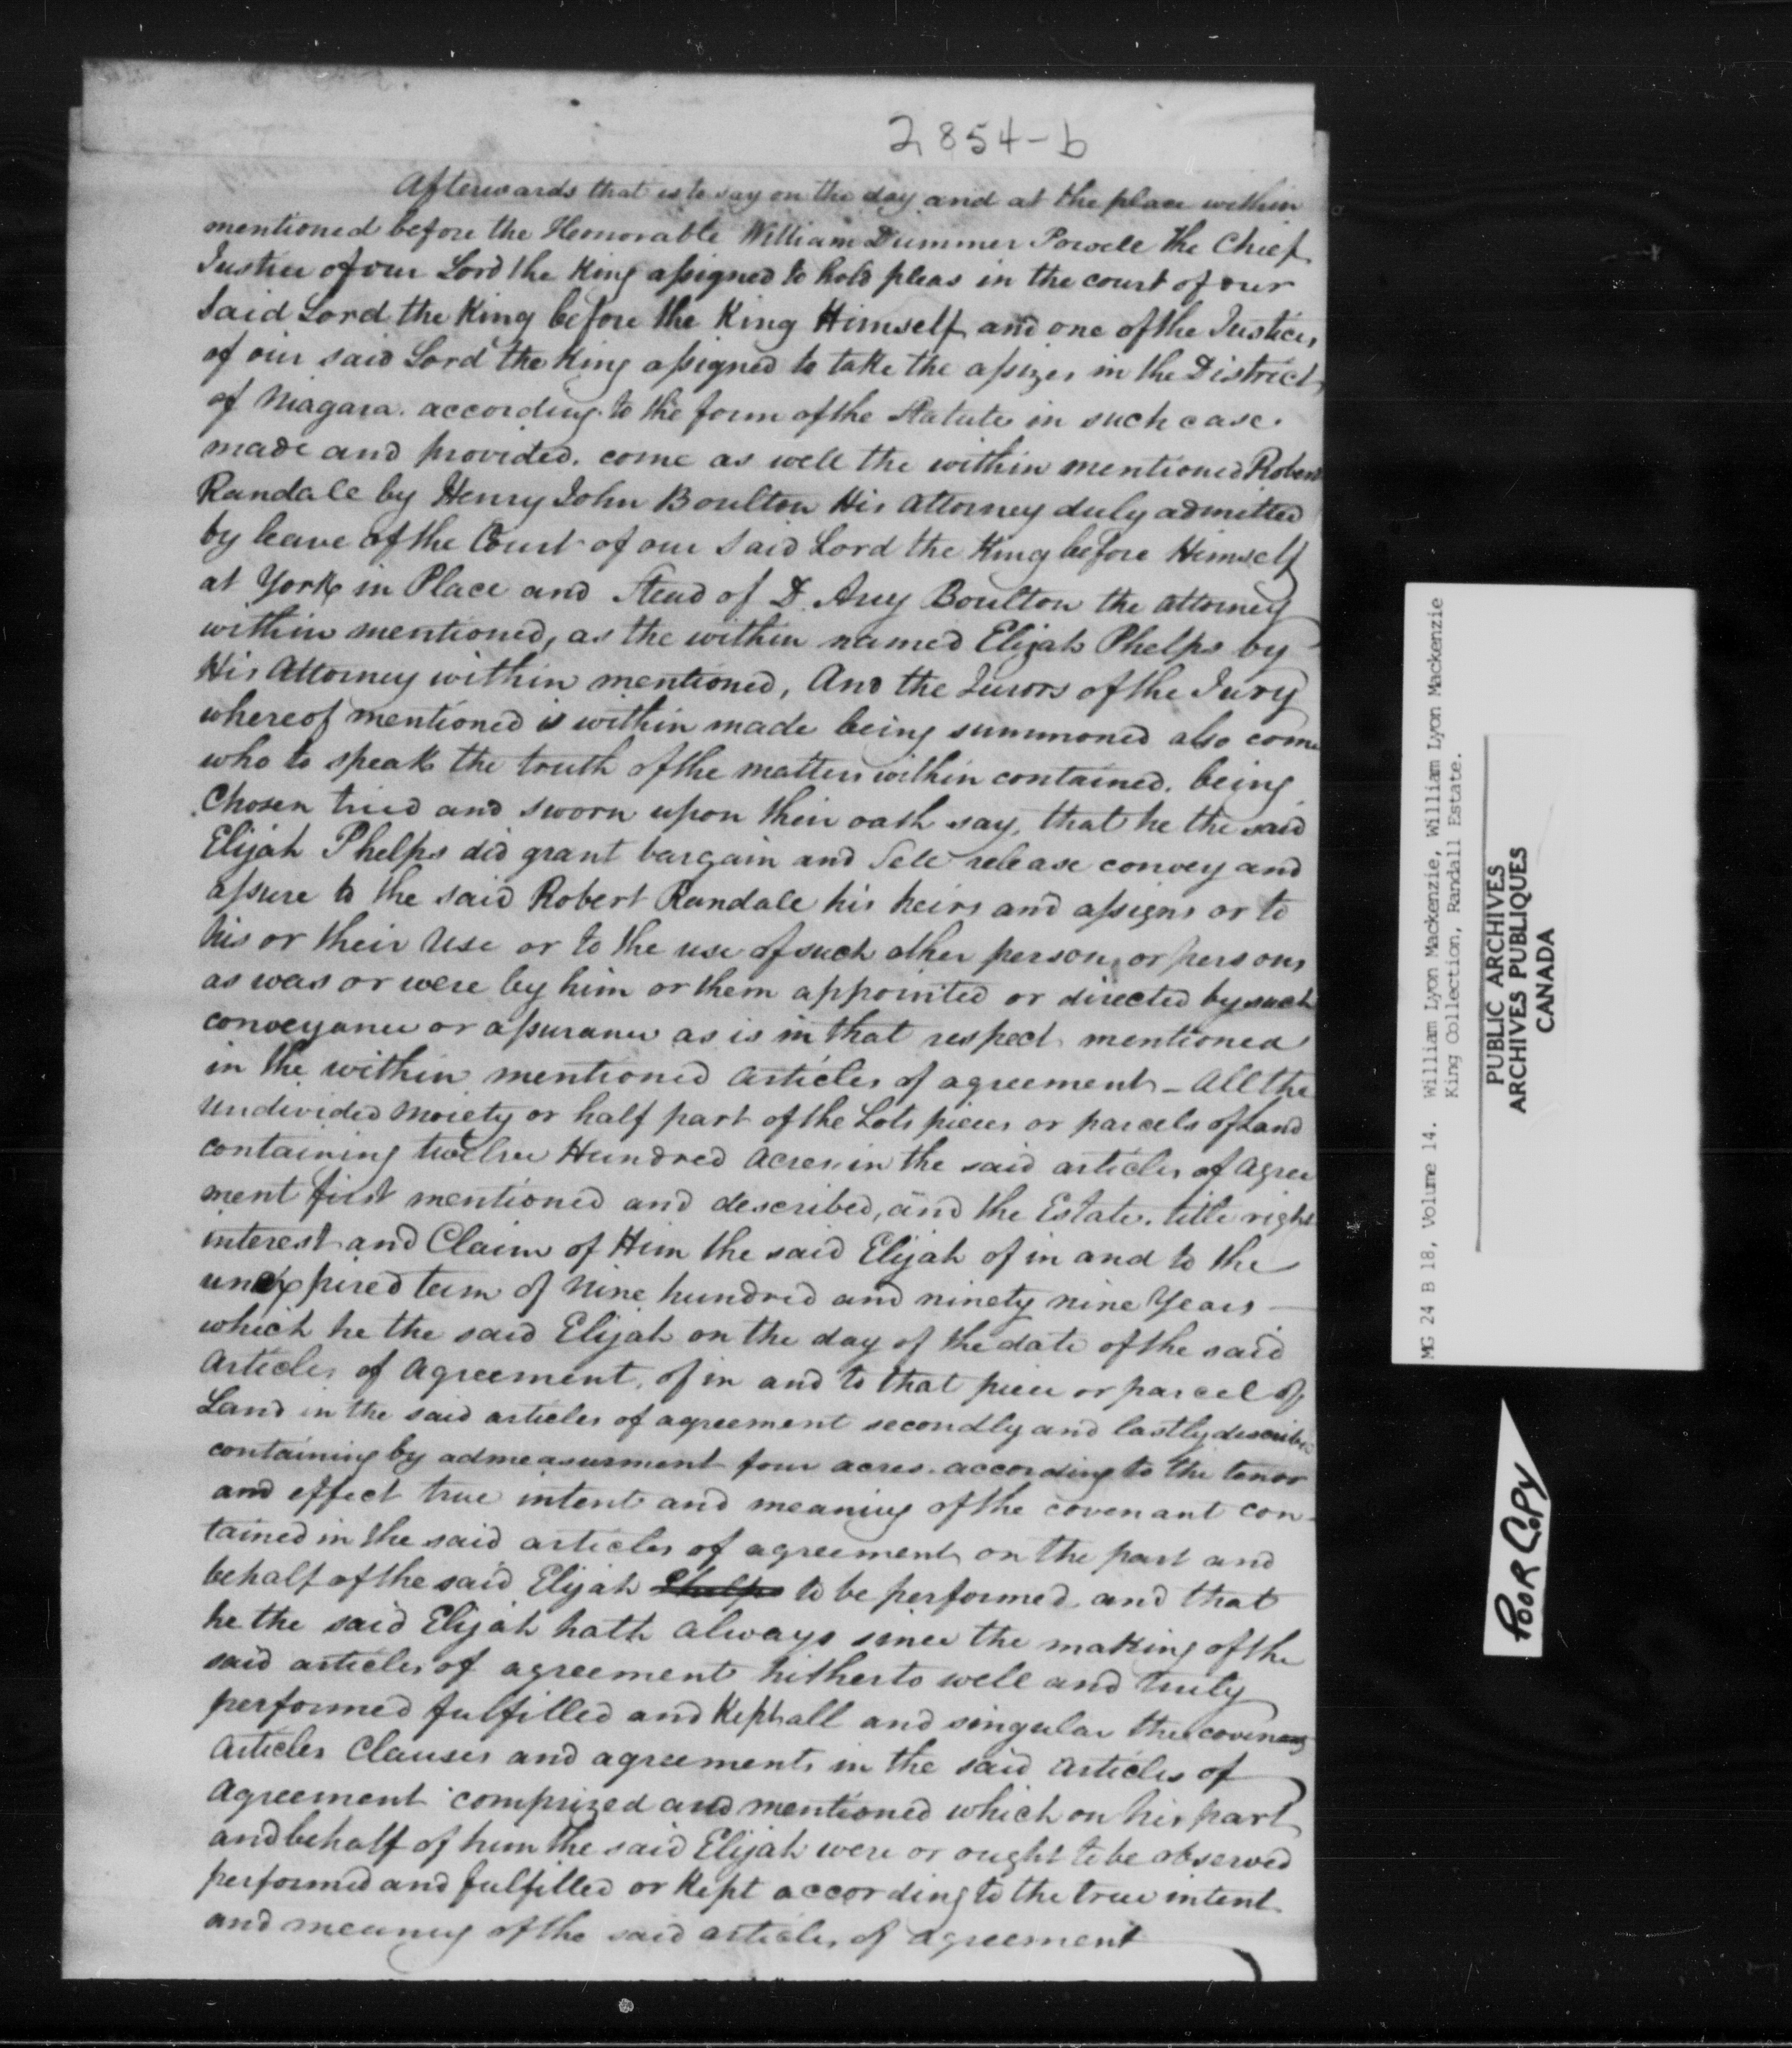 2854-b
Afterwards that is to say on the day and at the place within
mentioned before the Honorable William Dummer Powell the Chief
Justice of our Lord the King assigned to hold pleas in the court of our
Said Lord the King before the King Himself and one of the Justices
of our said Lord the King assigned to take the assizes in the District
of Niagara. according to the form of the Statute in such case.
made and provided. come as well the within mentioned Robert
Randall by Henry John Boulton His Attorney duly admitted
by leave of the Court of our Said Lord the King before Himself
at York in Place and Stead of D. Arcy Boulton the attorney
within mentioned, as the within named Elijah Phelps by
His Attorney within mentioned, And the Jurors of the Jury
whereof mentioned is within made being summoned also come
who to speak the truth of the matters within contained. being
Chosen tried and sworn upon their oath say, that he the said
Elijah Phelps did grant bargain and Sell release convey and
assure to the said Robert Randall his heirs and assigns or to
his or their Use or to the use of such other person or persons
as was or were by him or them appointed or directed by such
conveyance or assurance as is in that respect mentioned
in the within mentioned articles of agreement - All the
Undivided Moiety or half part of the Lots pieces or parcels of Land
containing twelve Hundred Acres in the said articles of agree
ment first mentioned and described, and the Estate. title right
interest and Claim of Him the said Elijah of in and to the
unexpired term of Nine hundred and ninety nine Years —
which he the said Elijah on the day of the date of the said
Articles of Agreement, of in and to that piece or parcel of
Land in the said articles of agreement secondly and lastly described
containing by admeasurment four acres. according to the tenor
and effect true intent and meaning of the covenant con-
tained in the said articles of agreement on the part and
behalf of the said Elijah Phelps to be performed and that
he the said Elijah hath always since the making of the
said articles of agreement hitherto well and truly
performed fulfilled and Kept all and singular the covenants
Articles Clauses and agreements in the said Articles of
Agreement comprized and mentioned which on his part
and behalf of him the said Elijah were or ought to be observed
performed and fulfilled or Kept according to the true intent
and meaning of the said articles of agreement
MG 24 B 18, Volume 14. William Lyon Mackenzie, William Lyon Mackenzie
King Collection, Randall Estate.
PUBLIC ARCHIVES
ARCHIVES PUBLIQUES
CANADA
POOR COPY